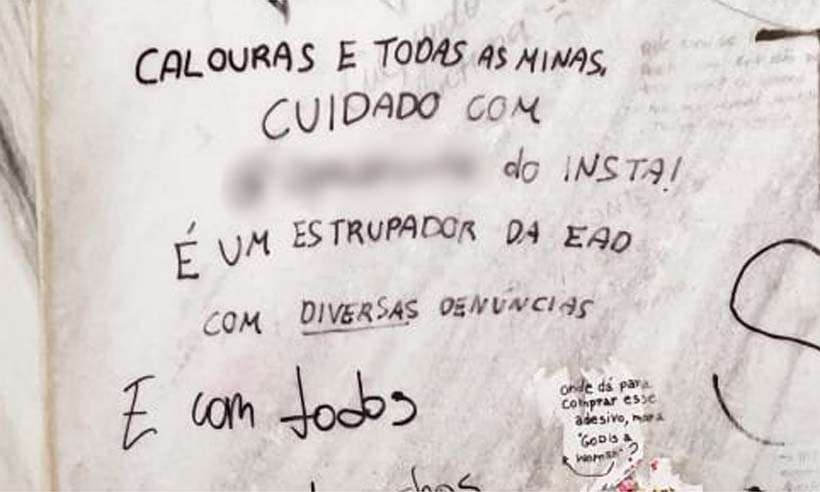 CALOURAS E TODAS AS MINAS,
CUIDADO COM
do INSTA!
É UM ESTRUPADOR DA EAD
COM DIVERSAS DENÚNCIAS
E com todos
onde dá para
comprar esse
adesivo, mara
"GOD IS A
WOMAN"?